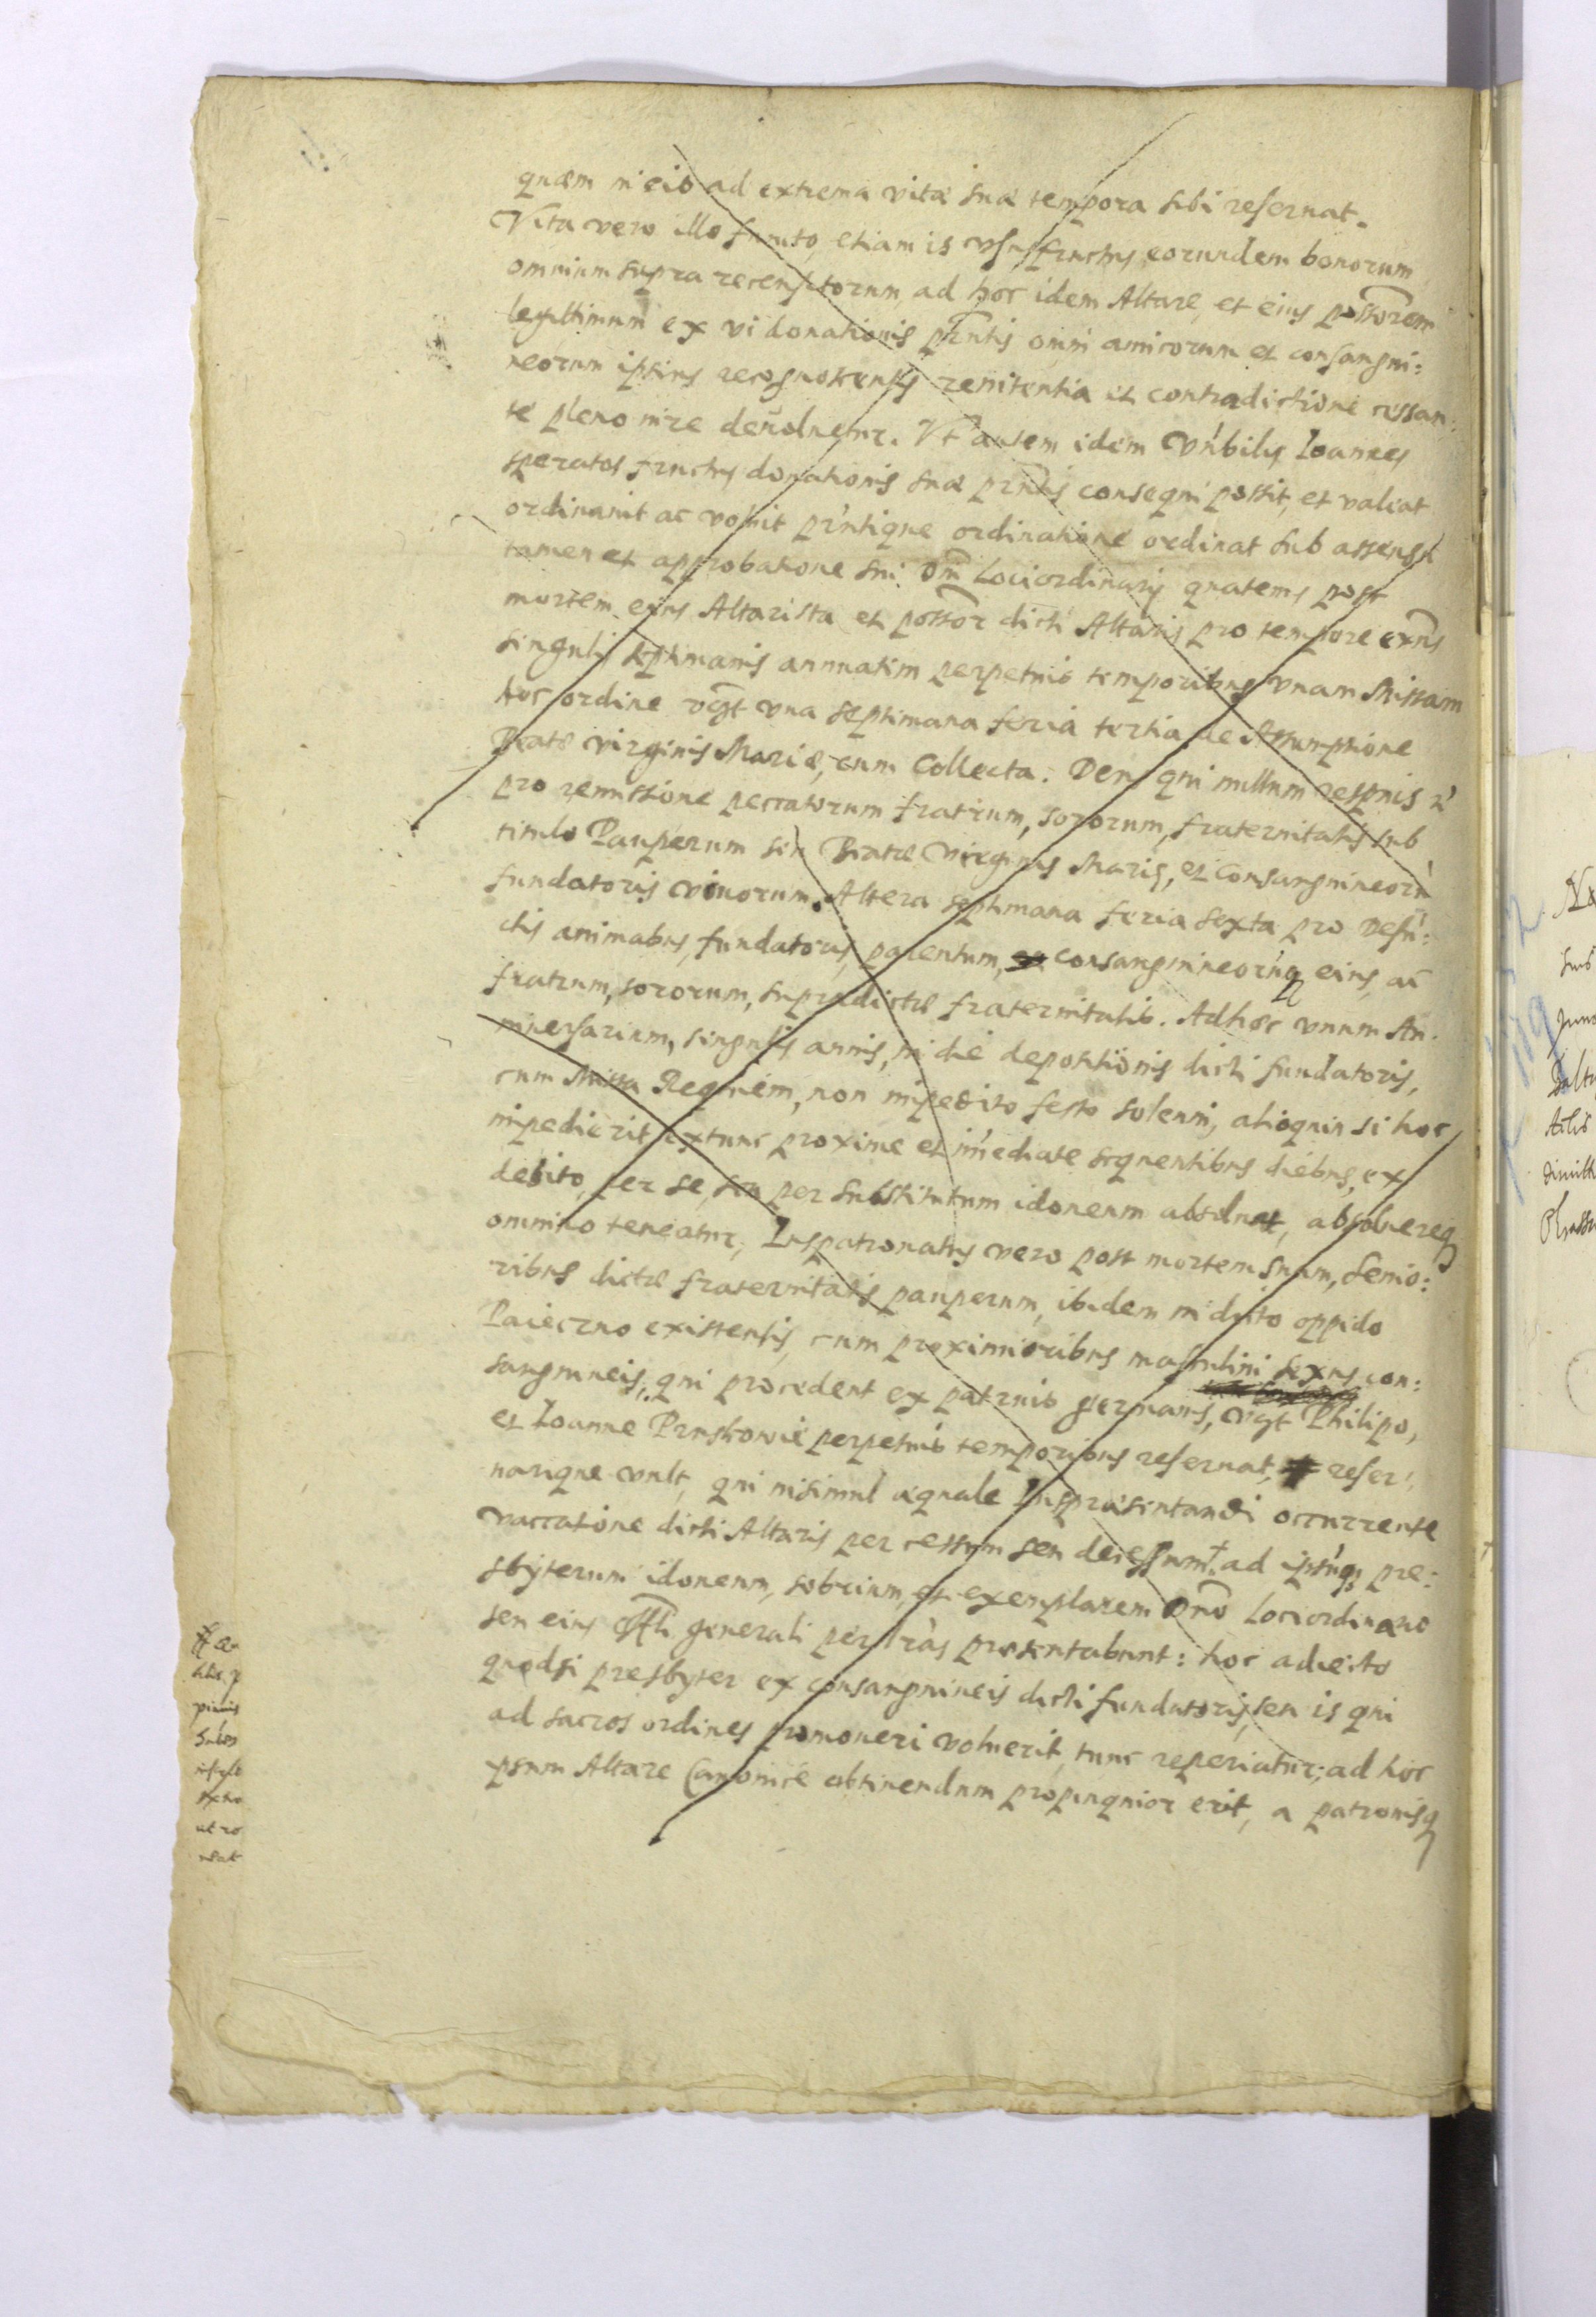 quam in eis ad extrema vitæ suæ tempora sibi reseruat.
Vita vero illo functo, etiam is vsusfructus eorundem bonorum
omnium supra recensitorum, ad hoc idem Altare, et eius possorem
legittimum ex vi donationis pñtis omni amicorum et consangui:
neorum ipsius recognoscentis renitentia et contradictione cessan:
te pleno iure deuoluetur. Vt autem idem Vñbilis Ioannes
speratos fructus donationis suæ pñtis consequi possit, et valeat
ordinauit ac voluit pñtique ordinatione ordinat sub assensu
tamen et approbatione sui Dñi Lociordinarij quatenus post
mortem eius Altarista et possor dicti Altaris pro tempore exñs
singulis septimanis annuatim perpetuis temporibus vnam Missam
hoc ordine vgt vna septimana feria tertia de Assumptione
Beatæ virginis Mariæ, cum Collecta. Deus qui nullum respuis &
pro remissione peccatorum fratrum, sororum, fraternitatis sub
titulo Pauperum seu Beatæ Virginis Mariæ, et consanguineorũ
fundatoris viuorum. Altera septimana feria sexta pro Defũ:
ctis animabus, fundatoris, parentum, consanguineorũq eius, ac
fratrum, sororum, supradictæ fraternitatis. Adhoc vnum An:
niuersarium, singulis annis, in die depositionis dicti fundatoris,
cum Missa Requiem, non impedito festo solenni, alioquin si hoc
impedierit extunc proxime et imediate sequentibus diebus, ex
debito, per se, seu per substitutum idoneum absoluat, absoluereq
omnino teneatur, Iuspatronatus vero post mortem suam, senio:
ribus dictæ fraternitatis pauperum, ibidem in dicto oppido
Paieczno existentis, cum proximioribus masculini sexus con:
sanguineis, qui procedent ex patruis germanis, vgt Philipo,
et Ioanne Pruskowie perpetuis temporibus reseruat, reser:
uarique vult, qui insimul æquale Iuspræsentandi occurrente
vaccatione dicti Altaris per cessum seu decessum + ad ipsũq pre:
sbyterum idoneum, sobrium, et exemplarem Dño Lociordinario
seu eius Offli generali per lras præsentabunt: hoc adiecto
quodsi presbyter ex consanguineis dicti fundatoris, seu is qui
ad sacros ordines promoueri voluerit, tunc reperiatur; ad hoc
ipsum Altare Canonice obtinendum propinquior erit, a patronisq